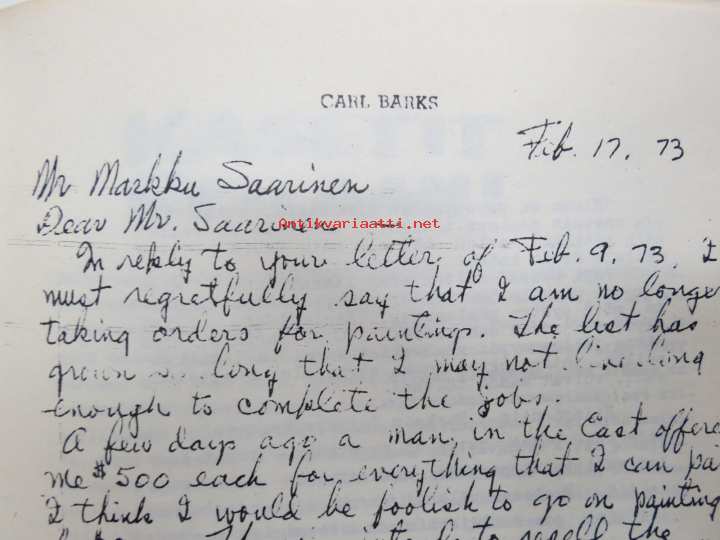 CARL BARKS
Feb. 17, 73
Mr Markku Saarinen
Dear Mr. Saarinen —
Antikvariaatti.net
In reply to your letter of Feb. 9, 73, I
must regretfully say that I am no longe
taking orders for paintings. The list has
grown so long that I may not live long
enough to complete the jobs.
A few days ago a man in the East offere
me $500 each for everything that I can pa
I think I would be foolish to go on painting
to resell the